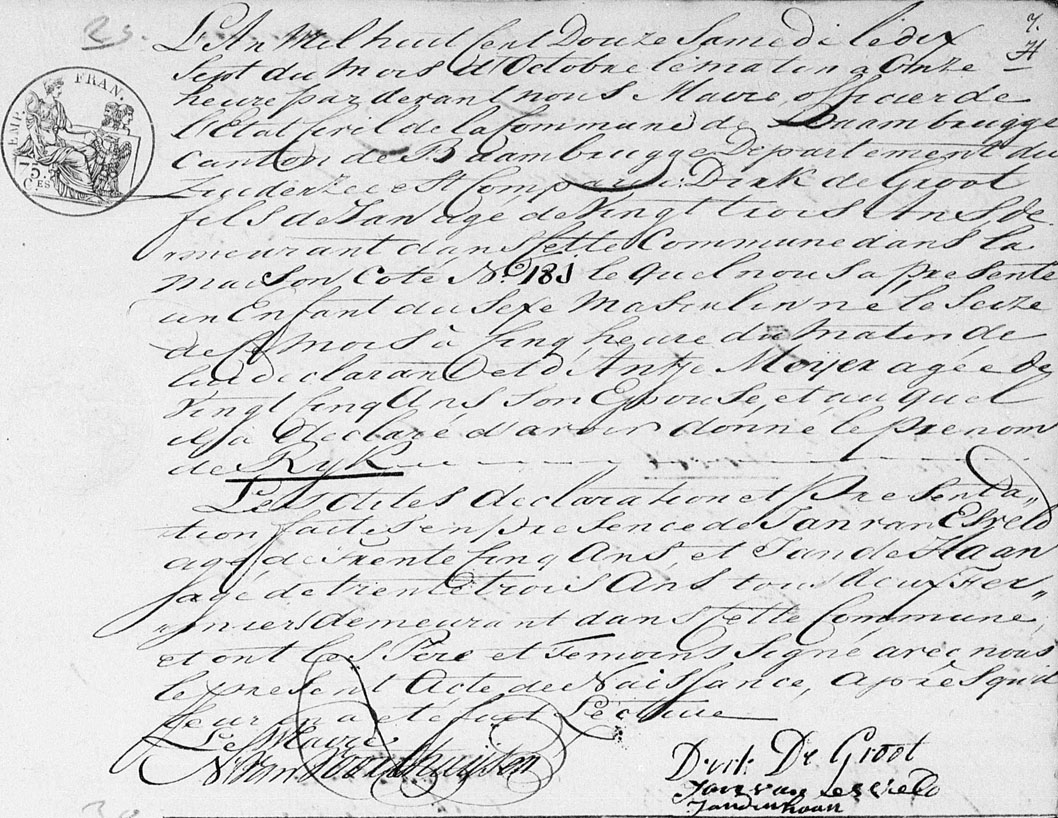 29.
7.
H
L'An Mil huit Cent Douze Samedi le dix
Sept du Mois d'Octobre le matin a Onze
heure par devant nous Maire, officier de
l'Etat Civil de la Commune de Baambrugge
Canton de Baambrugge Departement du
Zuiderzee est Comparu Dirk de Groot
fils de Jan agé de Vingt trois Ans de
meurant dans Cette Commune dans la
maison Coté No. 181 le quel nous a presenté
un Enfant du Sexe Masculin né le Seize
de Ce mois à Cinq heure du matin de
lui declarant et d'Antje Moijer agée de
Vingt Cinq Ans Son Epouse, et au quel
il a declaré d'avoir donné le prenom
de Ryk
Les dites declaration et presenta„
tion faites en presence de Jan van Esveld
agé de trente Cinq Ans, et Jan de Haan
agé de trente trois Ans tous deux Fer„
„miers demeurant dans Cette Commune,
et ont les Père et Temoins Signé avec nous
le present Acte de Naissance, après qu'il
leur en a eté fait Lecture
Le Maire
EMP. FRAN.
75 CES
Dirk De Groot
Jan van Esveld
Jan de Haan
30